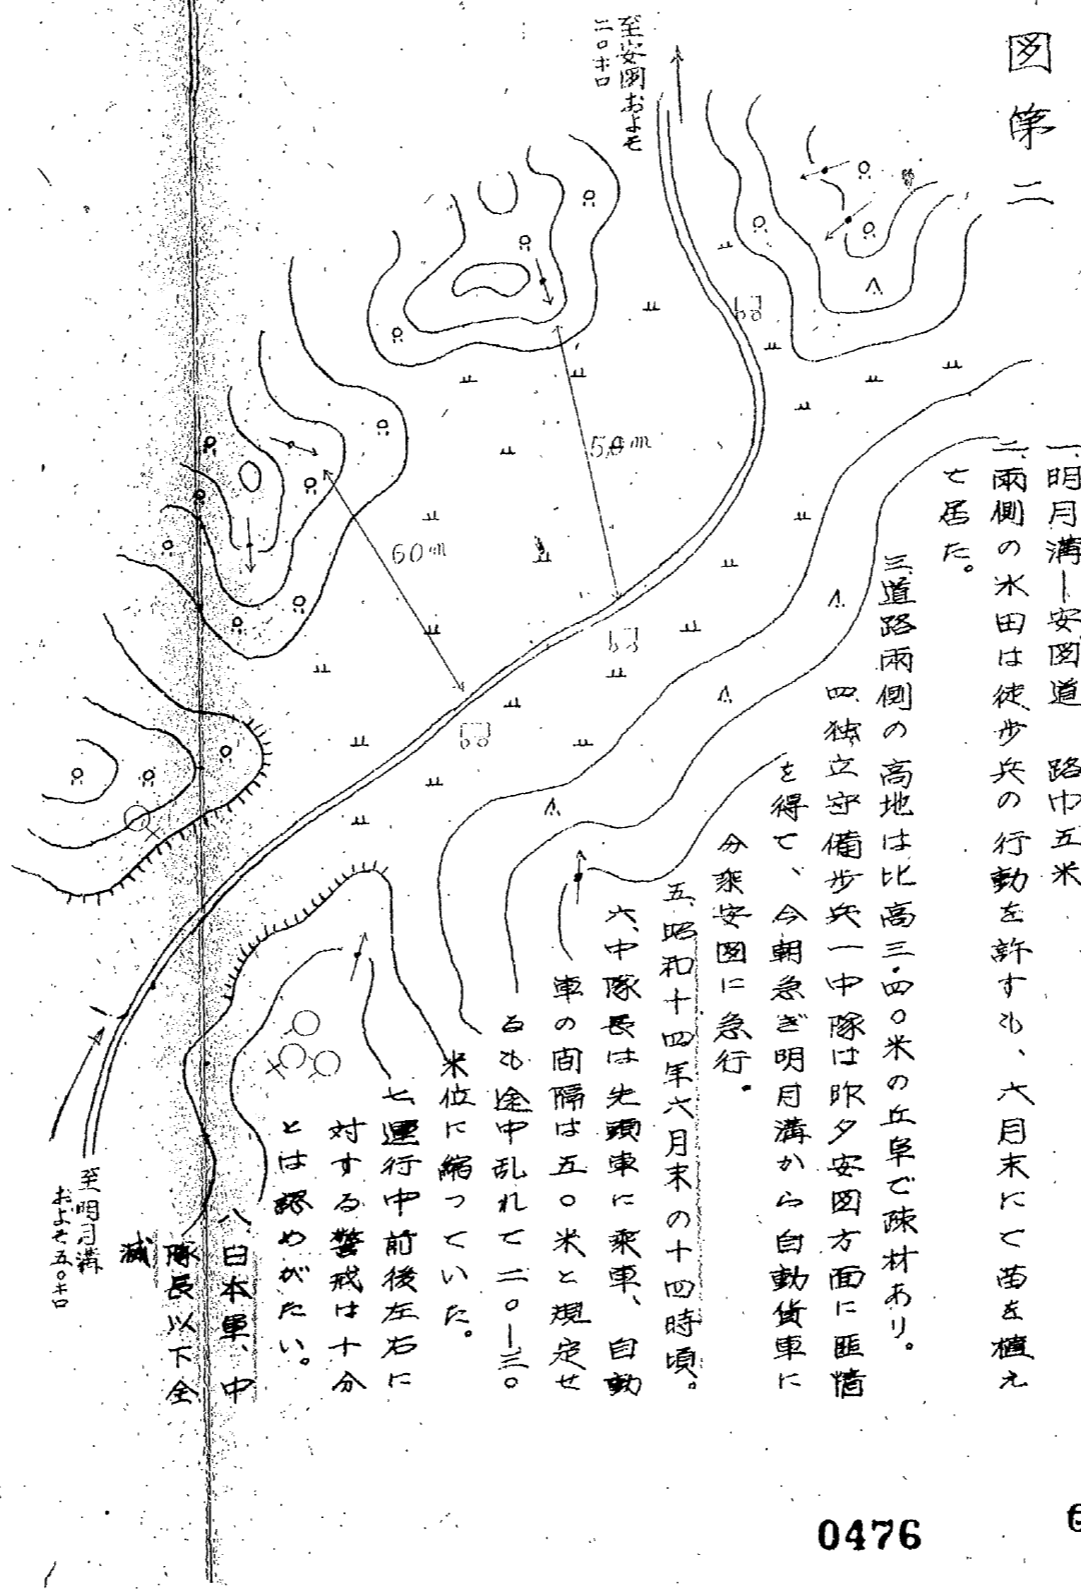 図第二
一、明月溝―安図道 路巾五米
二、両側の水田は徒歩兵の行動を許すも、六月末にて苗を植え
て居た。
三、道路両側の高地は比高三・四〇米の丘阜で疎材あり。
四、独立守備歩兵一中隊は昨夕安図方面に匪情
を得て、今朝急ぎ明月溝から自動貨車に
分乗安図に急行。
五、昭和十四年六月末の十四時頃。
六、中隊長は先頭車に乗車、自動
車の間隔は五〇米と規定せ
るも途中乱れて二〇―三〇
米位に縮っていた。
七、運行中前後左右に
対する警戒は十分
とは認めがたい。
八、日本軍、中
隊長以下全
滅
至安図およそ
二〇キロ
50m
60m
至明月溝
およそ五〇キロ
0476